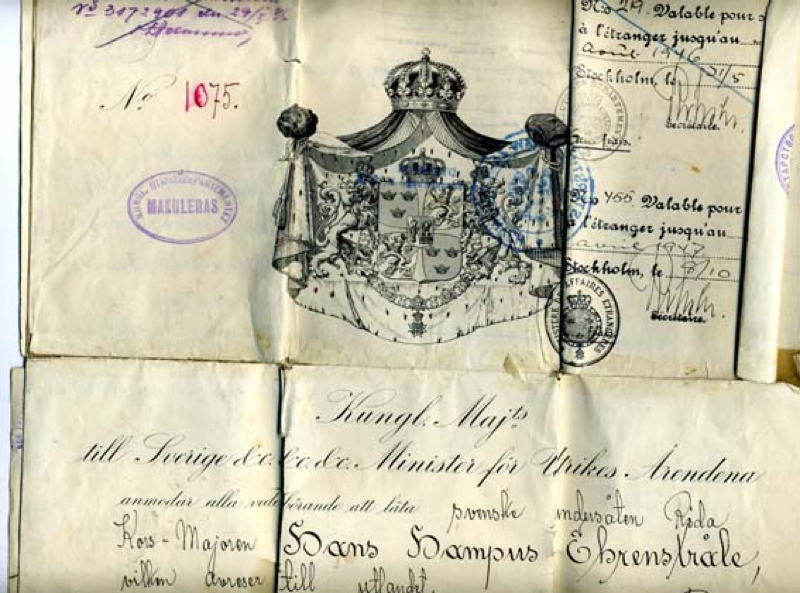 No 3072901 du 29/5
No 1075.
MAKULERAS
No 219. Valable pour
à l'étranger jusqu'au
Août 1946
Stockholm, le 31/5
Secrétaire.
No 455. Valable pour
à l'étranger jusqu'au
avril 1947
Stockholm, le 8/10
Secrétaire.
AFFAIRES ETRANGÈRES
Kungl. Maj:ts
till Sverige &c. &c. &c. Minister för Utrikes Ärendena
anmodar alla vederbörande att låta svenske undersåten Röda
Kors-Majoren Hans Hampus Ehrenstråle,
vilken avreser till utlandet,